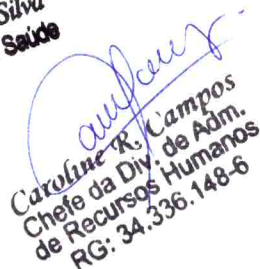 Silva
Saúde
Caroline R. Campos
Chefe da Div. de Adm.
de Recursos Humanos
RG: 34.336.148-6